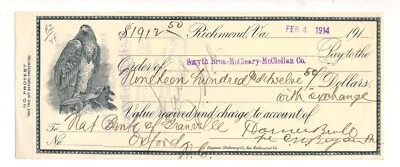 $1912 50 Richmond, Va. FEB 4 1914 191
Pay to the
Order of Smyth Bros-McCleary-McClellan Co.
Nineteen hundred & twelve 50/ Dollars
with exchange
Value received and charge to account of
To Nat Bank of Granville
No. Oxford N.C.
NO PROTEST